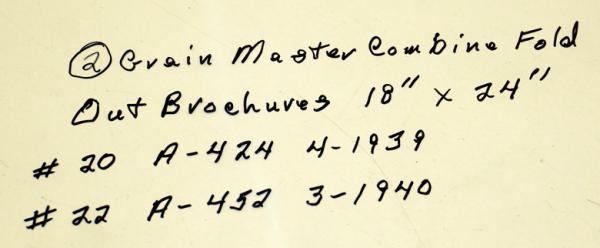 ② Grain Master Combine Fold
Out Brochures 18" x 24"
# 20 A-424 4-1939
# 22 A-452 3-1940